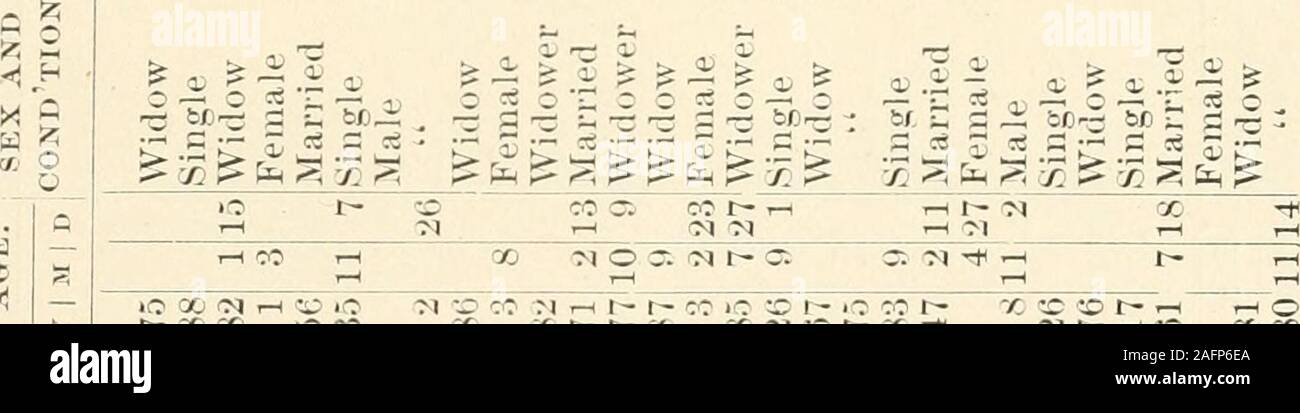 AGE. SEX AND
M D COND'TION
75 Widow
Single
1 15 Widow
1 3 Female
Married
11 7 Single
Male
2 26 "
Widow
3 8 Female
Widower
71 2 13 Married
77 10 9 Widower
9 Widow
3 2 23 Female
7 27 Widower
26 9 1 Single
Widow
75 "
9 Single
47 2 11 Married
4 27 Female
8 11 2 Male
26 Single
76 Widow
Single
7 18 Married
Female
Widow
11 14 "
alamy
Image ID: 2AFP6EA
www.alamy.com